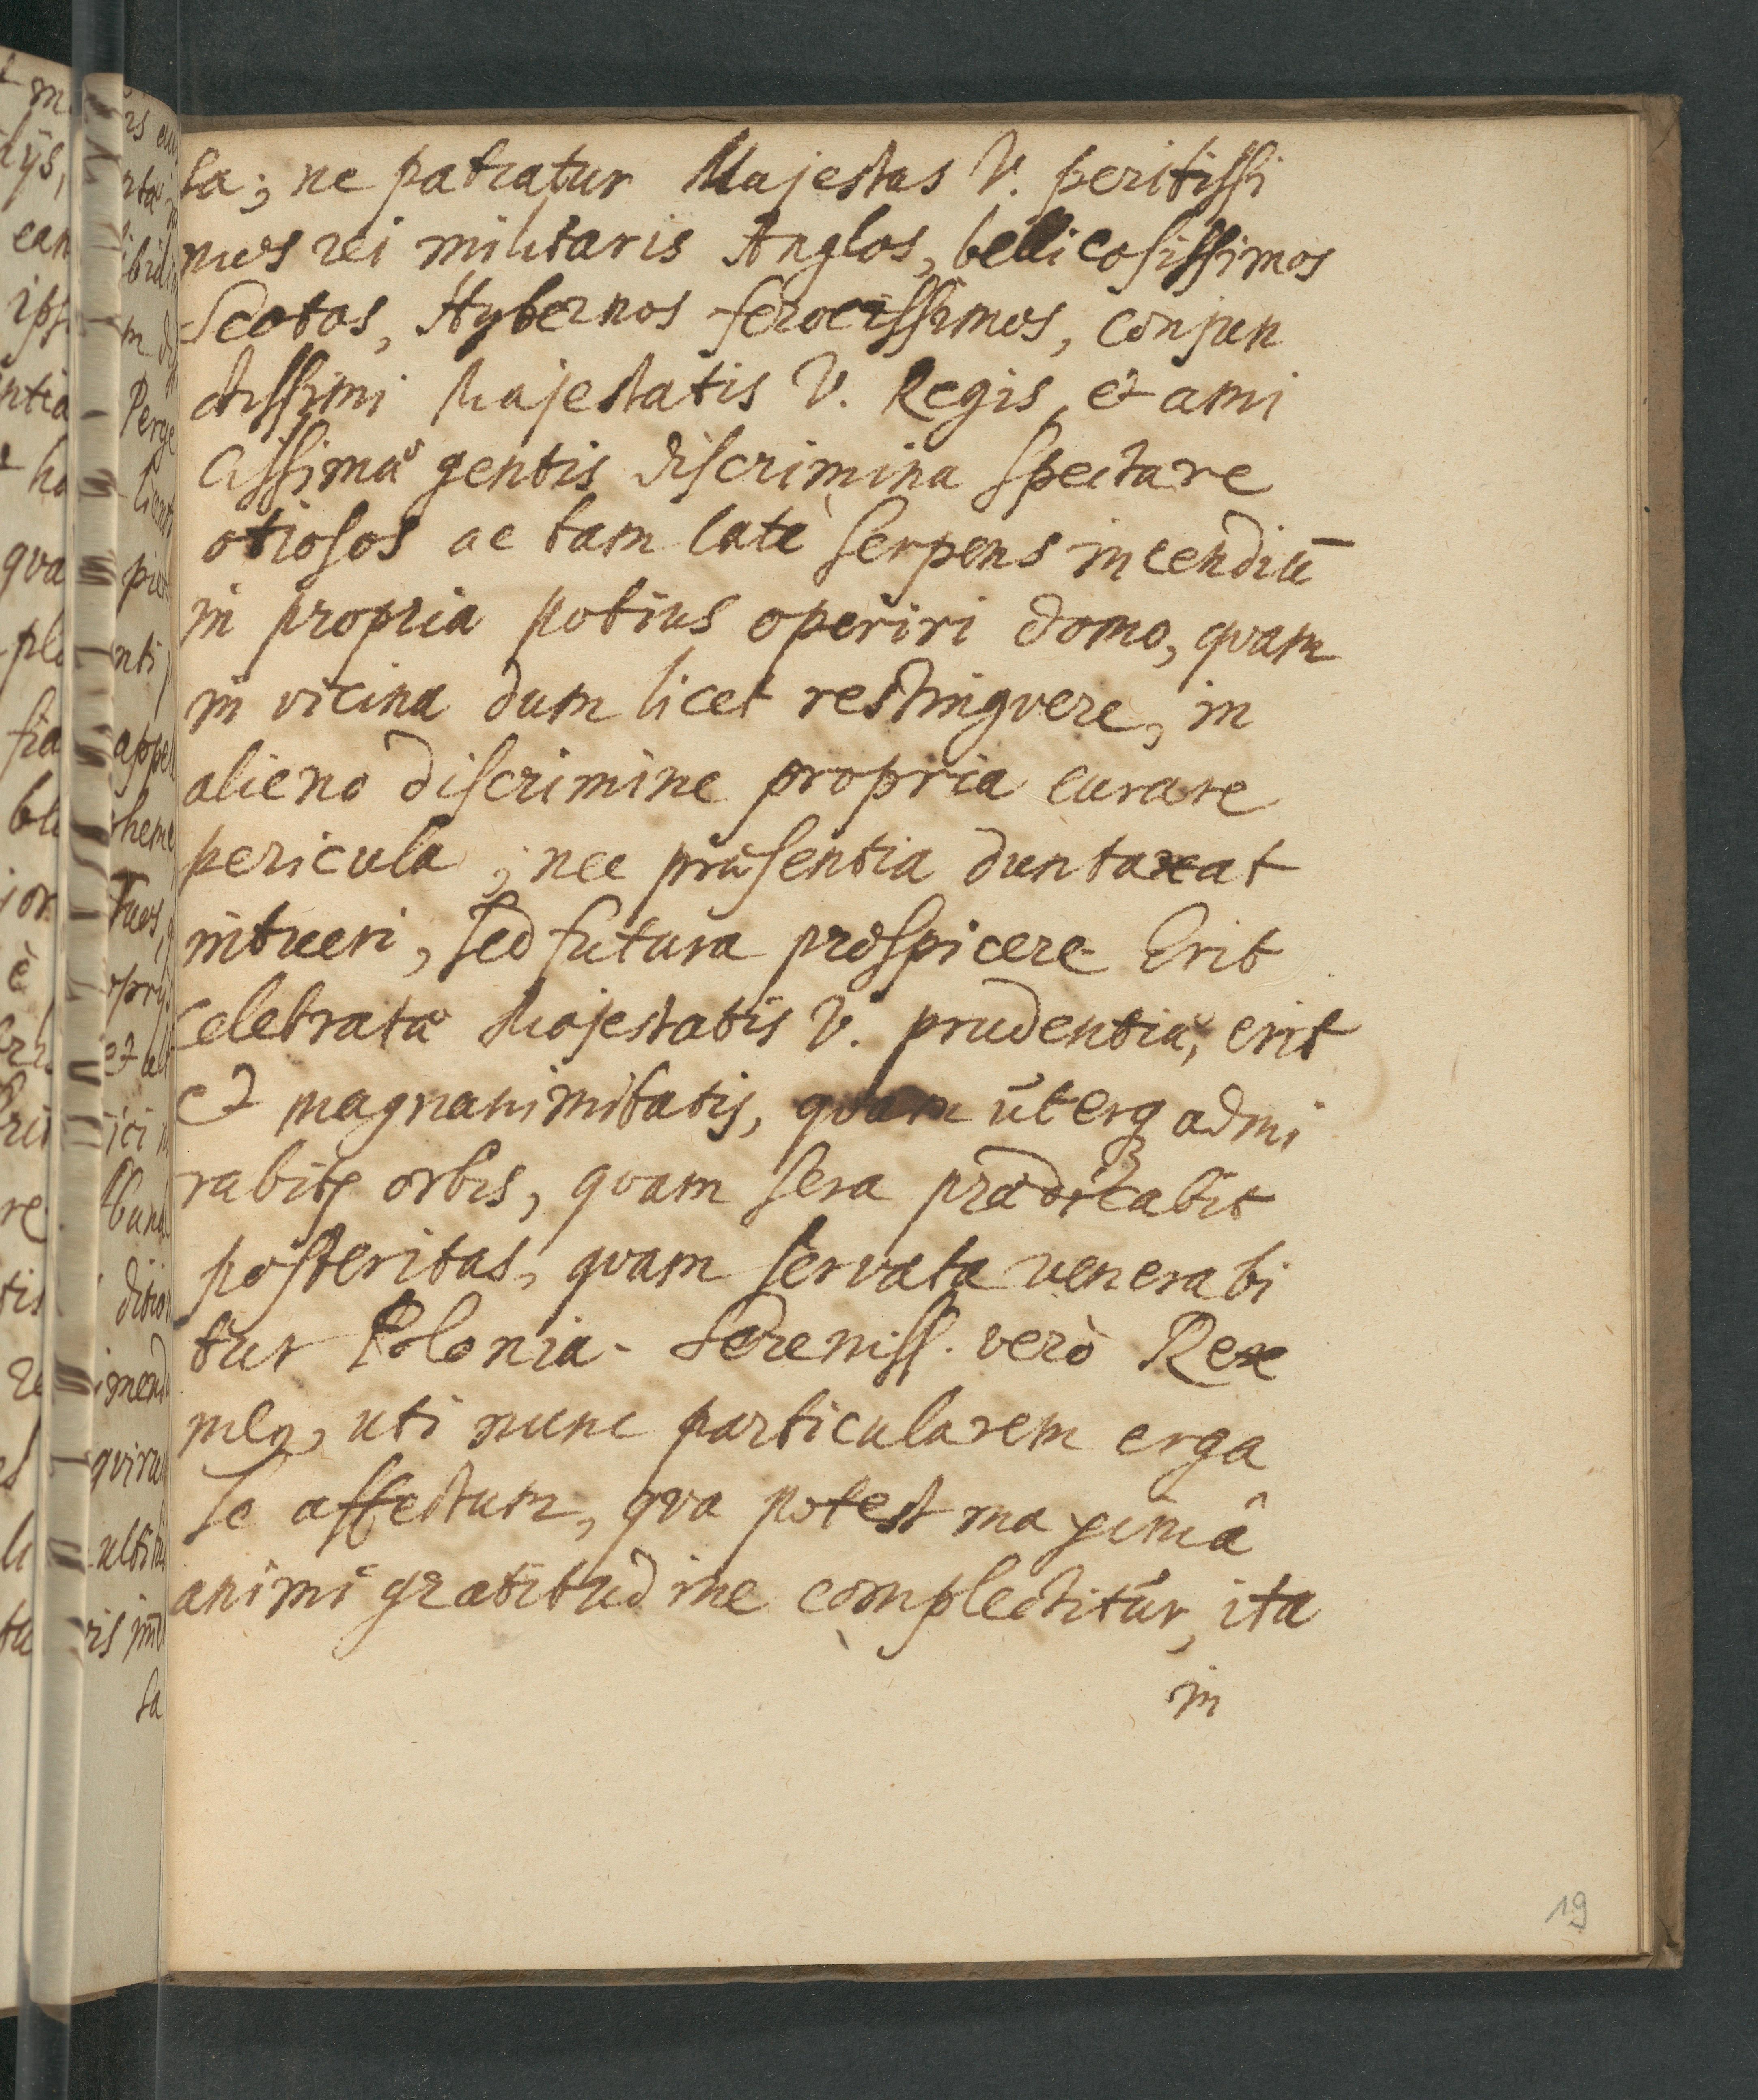 sa; ne patiatur Majestas V. peritissi
mos rei militaris Anglos, bellicosissimos
Scotos, Hybernos ferocissimos, conjun
ctissimi Majestatis V. Regis, et ami
cissimæ gentis discrimina spectare
otiosos ac tam latè serpens incendiū
in propria potius operiri domo, quam
in vicina dum licet restinguere, in
alieno discrimine propria curare
pericula; nec præsentia duntaxat
intueri, sed futura prospicere. Erit
celebratæ Majestatis V. prudentiæ, erit
et magnanimitatis, quam uterq admi
rabitr orbis, quam sera prædicabit
posteritas, quam servata venerabi
tur Polonia. Sereniss. verò Rex
meus, uti nunc particularem erga
se affectum, qva potest maximâ
animi gratitudine complectitur, ita
in
19